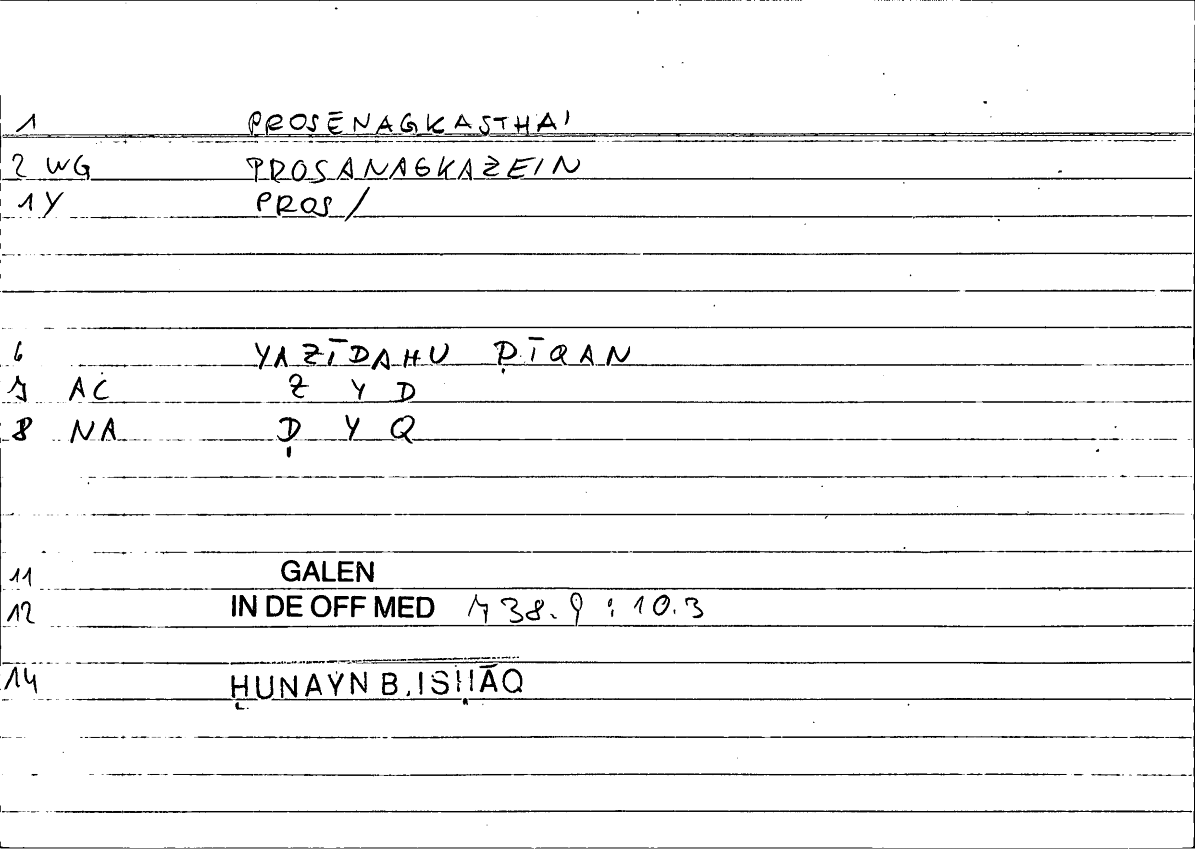 1 PROSĒNAGKASTHAI
2 WG PROSANAGKAZEIN
1Y PROS/
6 YAZĪDAHU ḌĪQAN
7 AC Z Y D
8 NA Ḍ Y Q
11 GALEN
12 IN DE OFF MED 738.9 : 10.3
14 ḤUNAYN B. ISḤĀQ